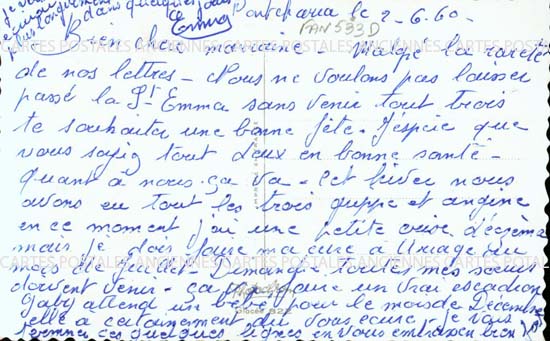 dans quelques jours
Emma
Pontcharra le 2-6.60.
PAN 533 D
Bien chère marraine. Malgré la rareté
de nos lettres - Nous ne voulons pas laisser
passé la St Emma sans venir tout trois
te souhaiter une bonne fête. J'espère que
vous soyez tout deux en bonne santé -
quant à nous ça va - Cet hiver nous
avons eu tout les trois grippe et angine
en ce moment j'ai une petite crise d'éczèma
mais je dois faire ma cure à Uriage au
mois de Juillet - Dimanche toutes mes soeurs
doivent venir - ça faire un vrai escadron
Gaby attend un bébé pour le mois de Décembre
elle a certainement du vous écrire - je vais
terminer ces quelques lignes en vous embrassen bien
CARTES POSTALES ANCIENNES